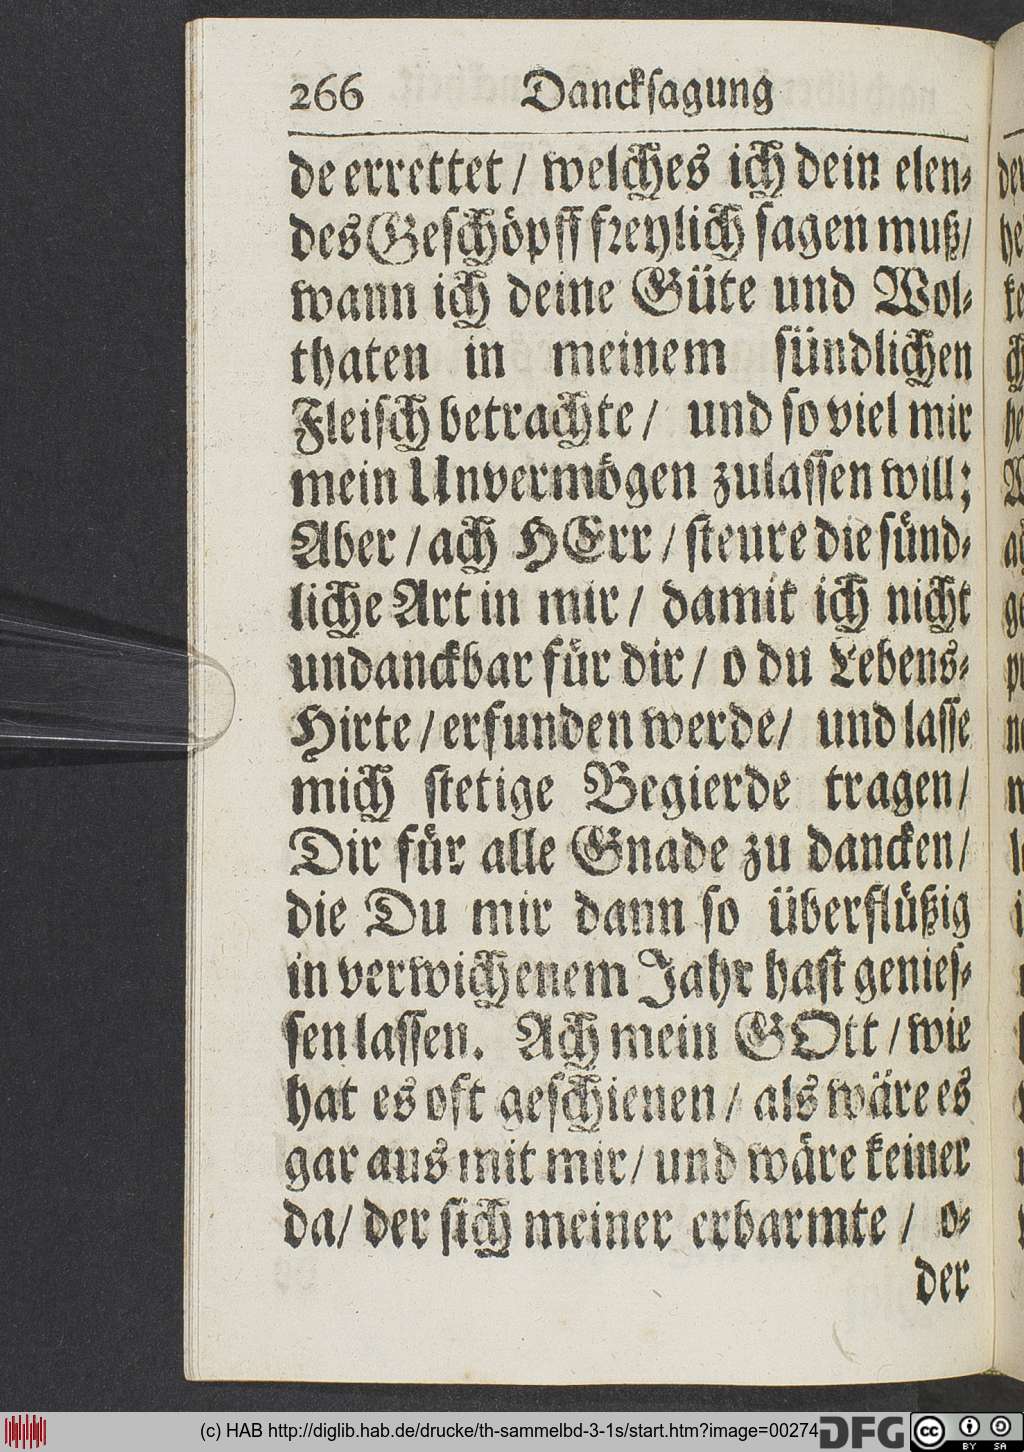 266 Danckſagung
de errettet / welches ich dein elen-
des Geſchöpff freylich ſagen muß/
wann ich deine Güte und Wol-
thaten in meinem ſündlichen
Fleiſch betrachte / und ſo viel mir
mein Unvermögen zulaſſen will;
Aber / ach HErr / ſteure die ſünd-
liche Art in mir / damit ich nicht
undanckbar für dir / o du Lebens-
Hirte / erfunden werde / und laſſe
mich ſtetige Begierde tragen /
Dir für alle Gnade zu dancken /
die Du mir dann ſo überflüßig
in verwichenem Jahr haſt genieſ-
ſen laſſen. Ach mein GOtt / wie
hat es oft geſchienen / als wäre es
gar aus mit mir / und wäre keiner
da / der ſich meiner erbarmte / o-
der
(c) HAB http://diglib.hab.de/drucke/th-sammelbd-3-1s/start.htm?image=00274
DFG
cc BY SA